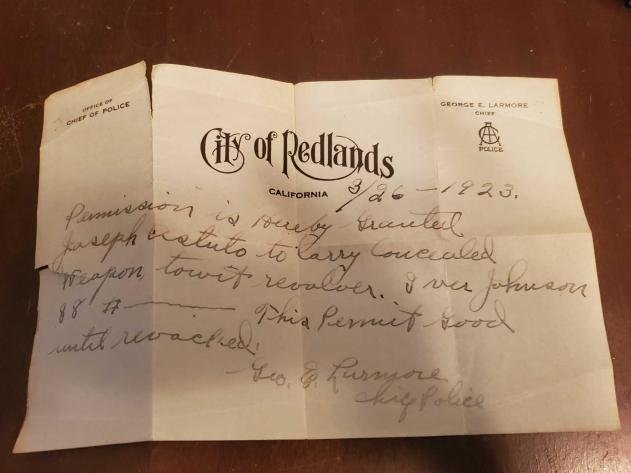 OFFICE OF
CHIEF OF POLICE
GEORGE E. LARMORE
CHIEF
POLICE
City of Redlands
CALIFORNIA
3/26-1923.
Permission is Hereby Granted
Joseph to Carry Concealed
Weapon, towit revolver. Iver Johnson
88 # This Permit Good
until revocked.
Geo. E. Larmore
Chief Police